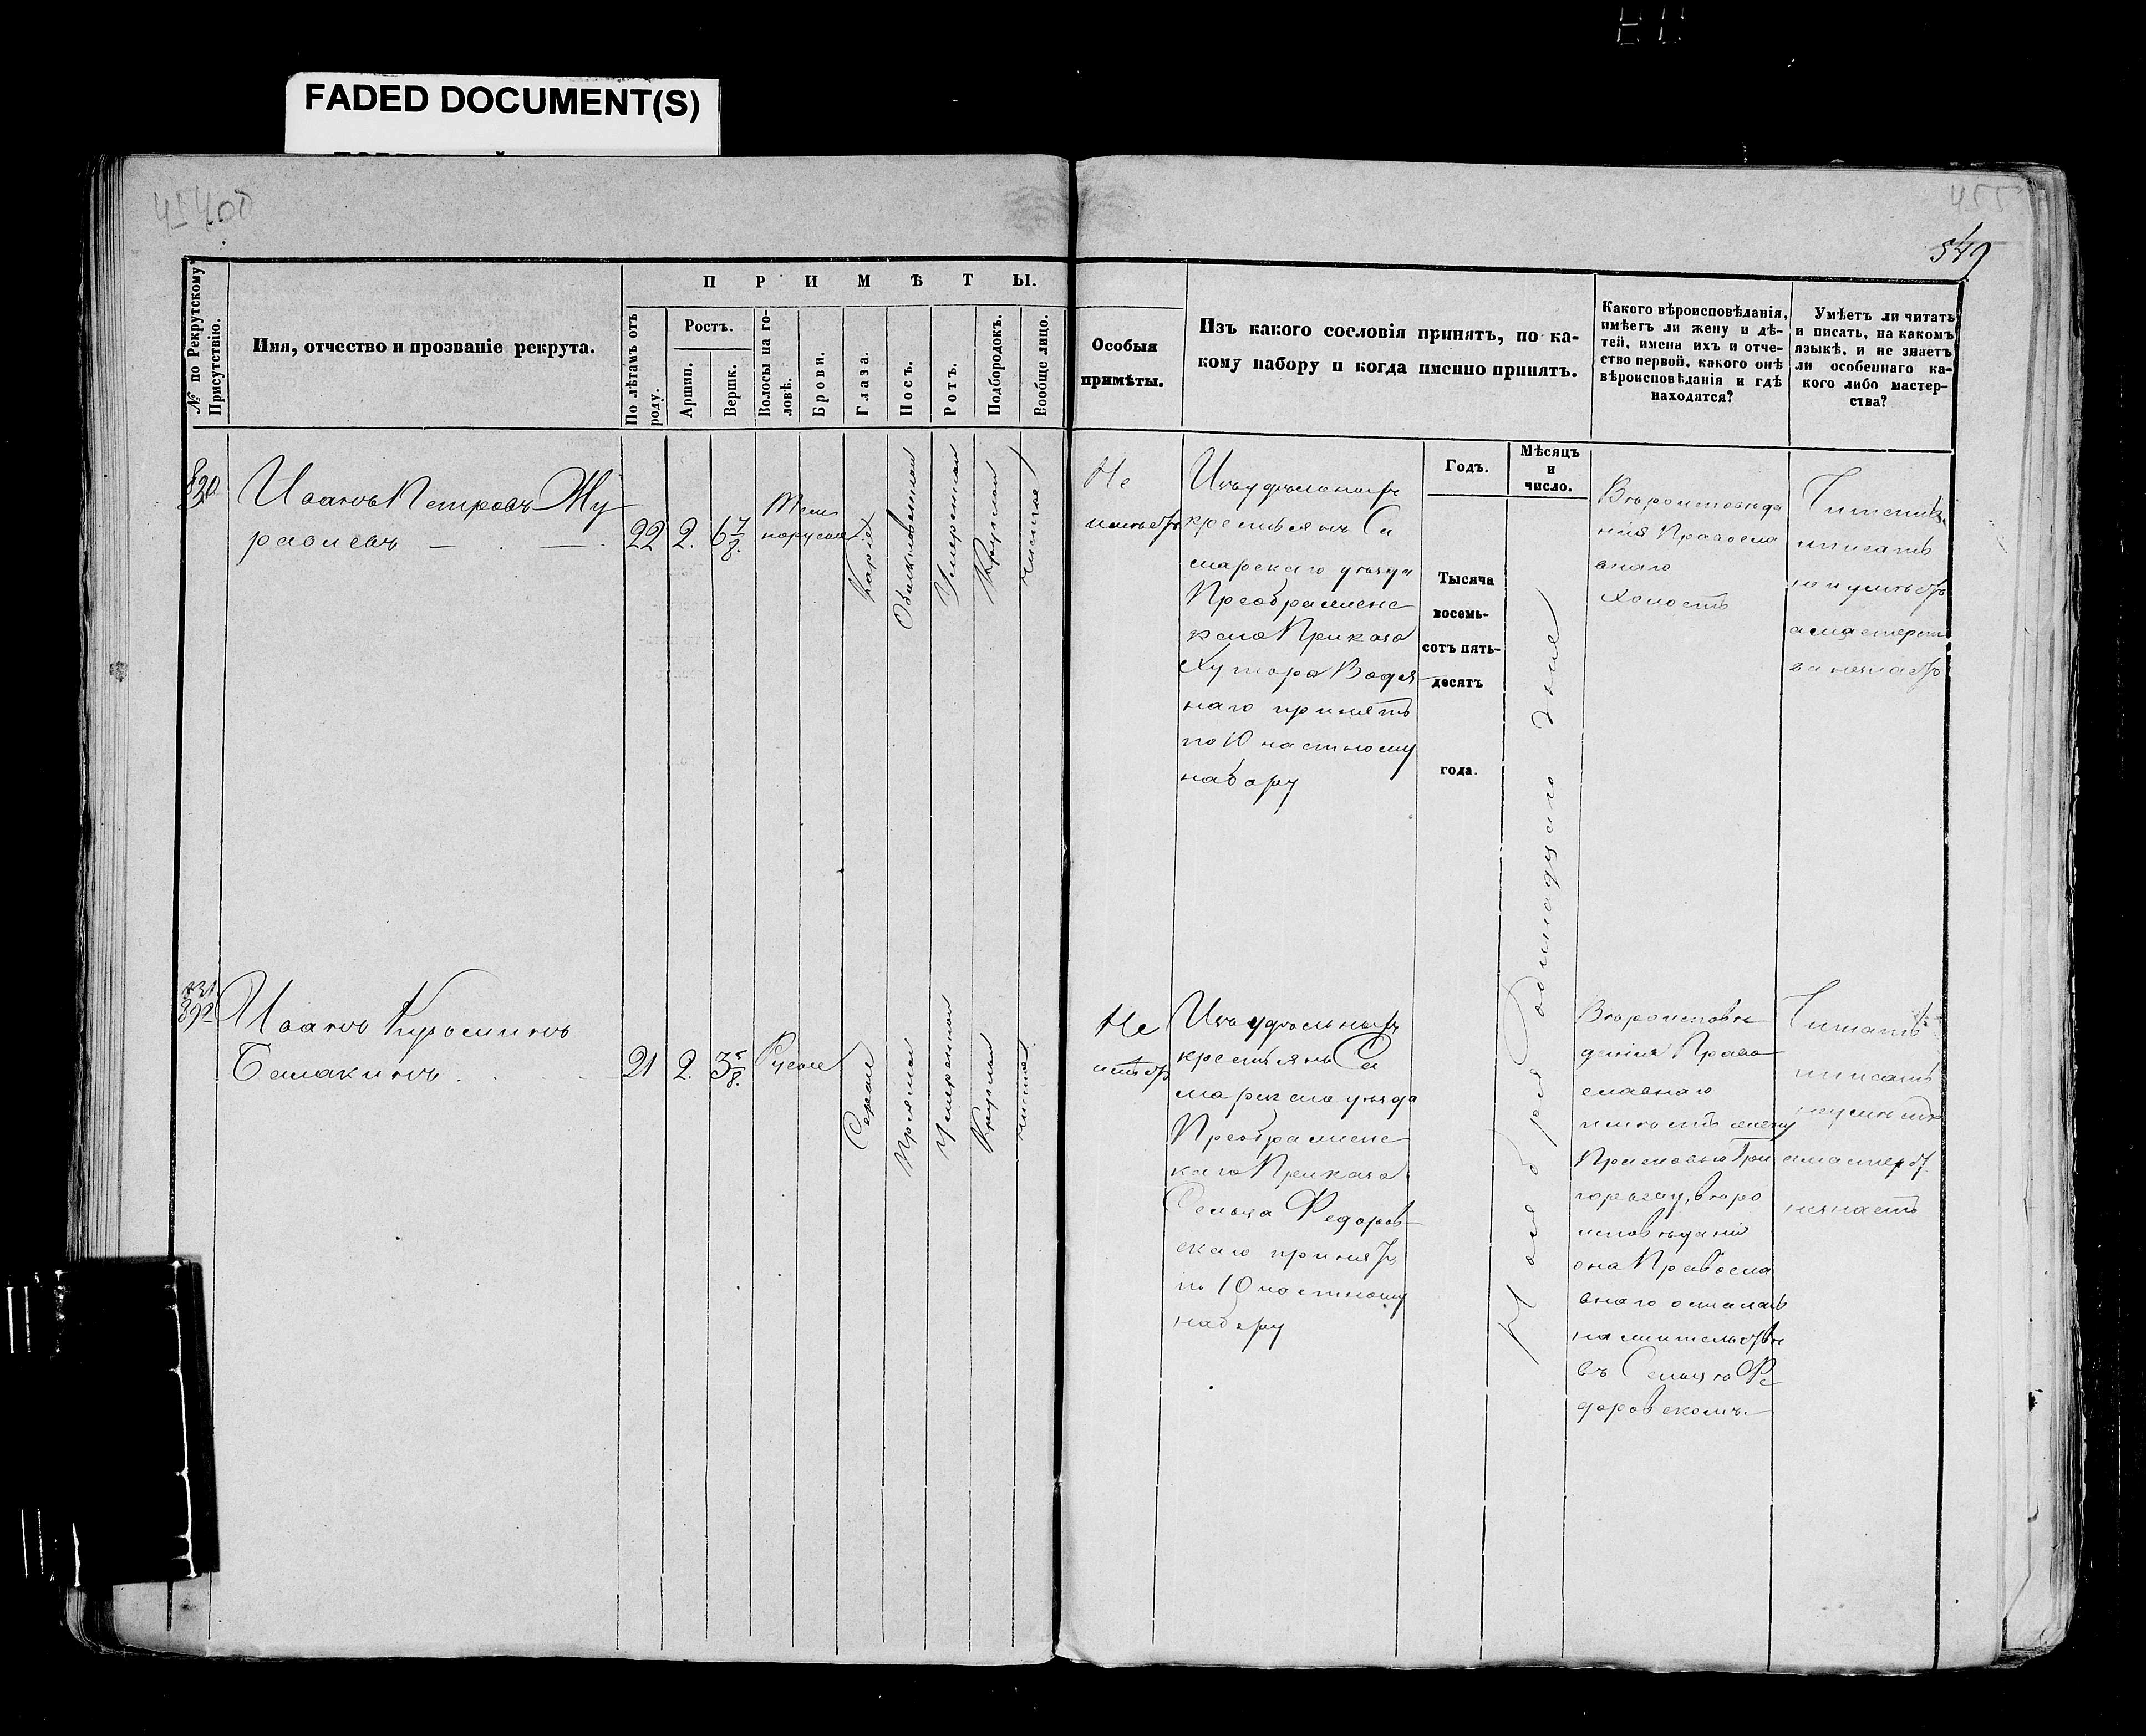 FADED DOCUMENT(S)
455
549
№ по Рекрутскому Присутствію.
Имя, отчество и прозваніе рекрута.
ПРИМѢТЫ.
По лѣтамъ отъ роду.
Ростъ.
Аршин.
Вершк.
Волосы на головѣ.
Брови.
Глаза.
Носъ.
Ротъ.
Подбородокъ.
Вообще лицо.
Особыя
примѣты.
Изъ какого сословія принятъ, по ка-
кому набору и когда именно принятъ.
Какого вѣроисповѣданія,
имѣетъ ли жену и дѣ-
тей, имена ихъ и отче-
ство первой, какого онѣ
вѣроисповѣданія и гдѣ
находятся?
Умѣетъ ли читать
и писать, на какомъ
языкѣ, и не знаетъ
ли особеннаго ка-
кого либо мастер-
ства?
Годъ.
Мѣсяцъ
и
число.
830
Иванъ Петровъ Жу
равлевъ
22
2.
6 7/8.
Тем
норусые
Каріе
Обыкновенной
Умеренной
Круглой
чистое
Не
имѣетъ
Изъ удѣльныхъ
крестьянъ Са
марскаго уѣзда
Преображенс
каго Приказа
Хутора Водя
наго принятъ
по 10 частному
набору
Тысяча
восемь-
сотъ пять-
десятъ
года.
Ноября одинадцатого дня
Вѣроисповѣда
нія Правосла
внаго
холостъ
Читать
и писать
не умѣетъ
а мастерст
ва незнаетъ
Иванъ Кузьминъ
Балакинъ
21
2.
3 5/8.
Русые
Серые
Прямой
Умеренной
Круглой
чистое
Не
имѣетъ
Изъ удѣльныхъ
крестьянъ Са
марскаго уѣзда
Преображенс
каго Приказа
Сельца Федоров
скаго принятъ
по 10 частному
набору
Вѣроисповѣ
данія Право
славнаго
имѣетъ жену
Прасковью Гри
горьеву, вѣро
исповѣданія
она Правосла
внаго осталась
на жительствѣ
въ Сельцѣ Фе
доровскомъ.
Читать
и писать
неумѣетъ
а мастерст
незнаетъ